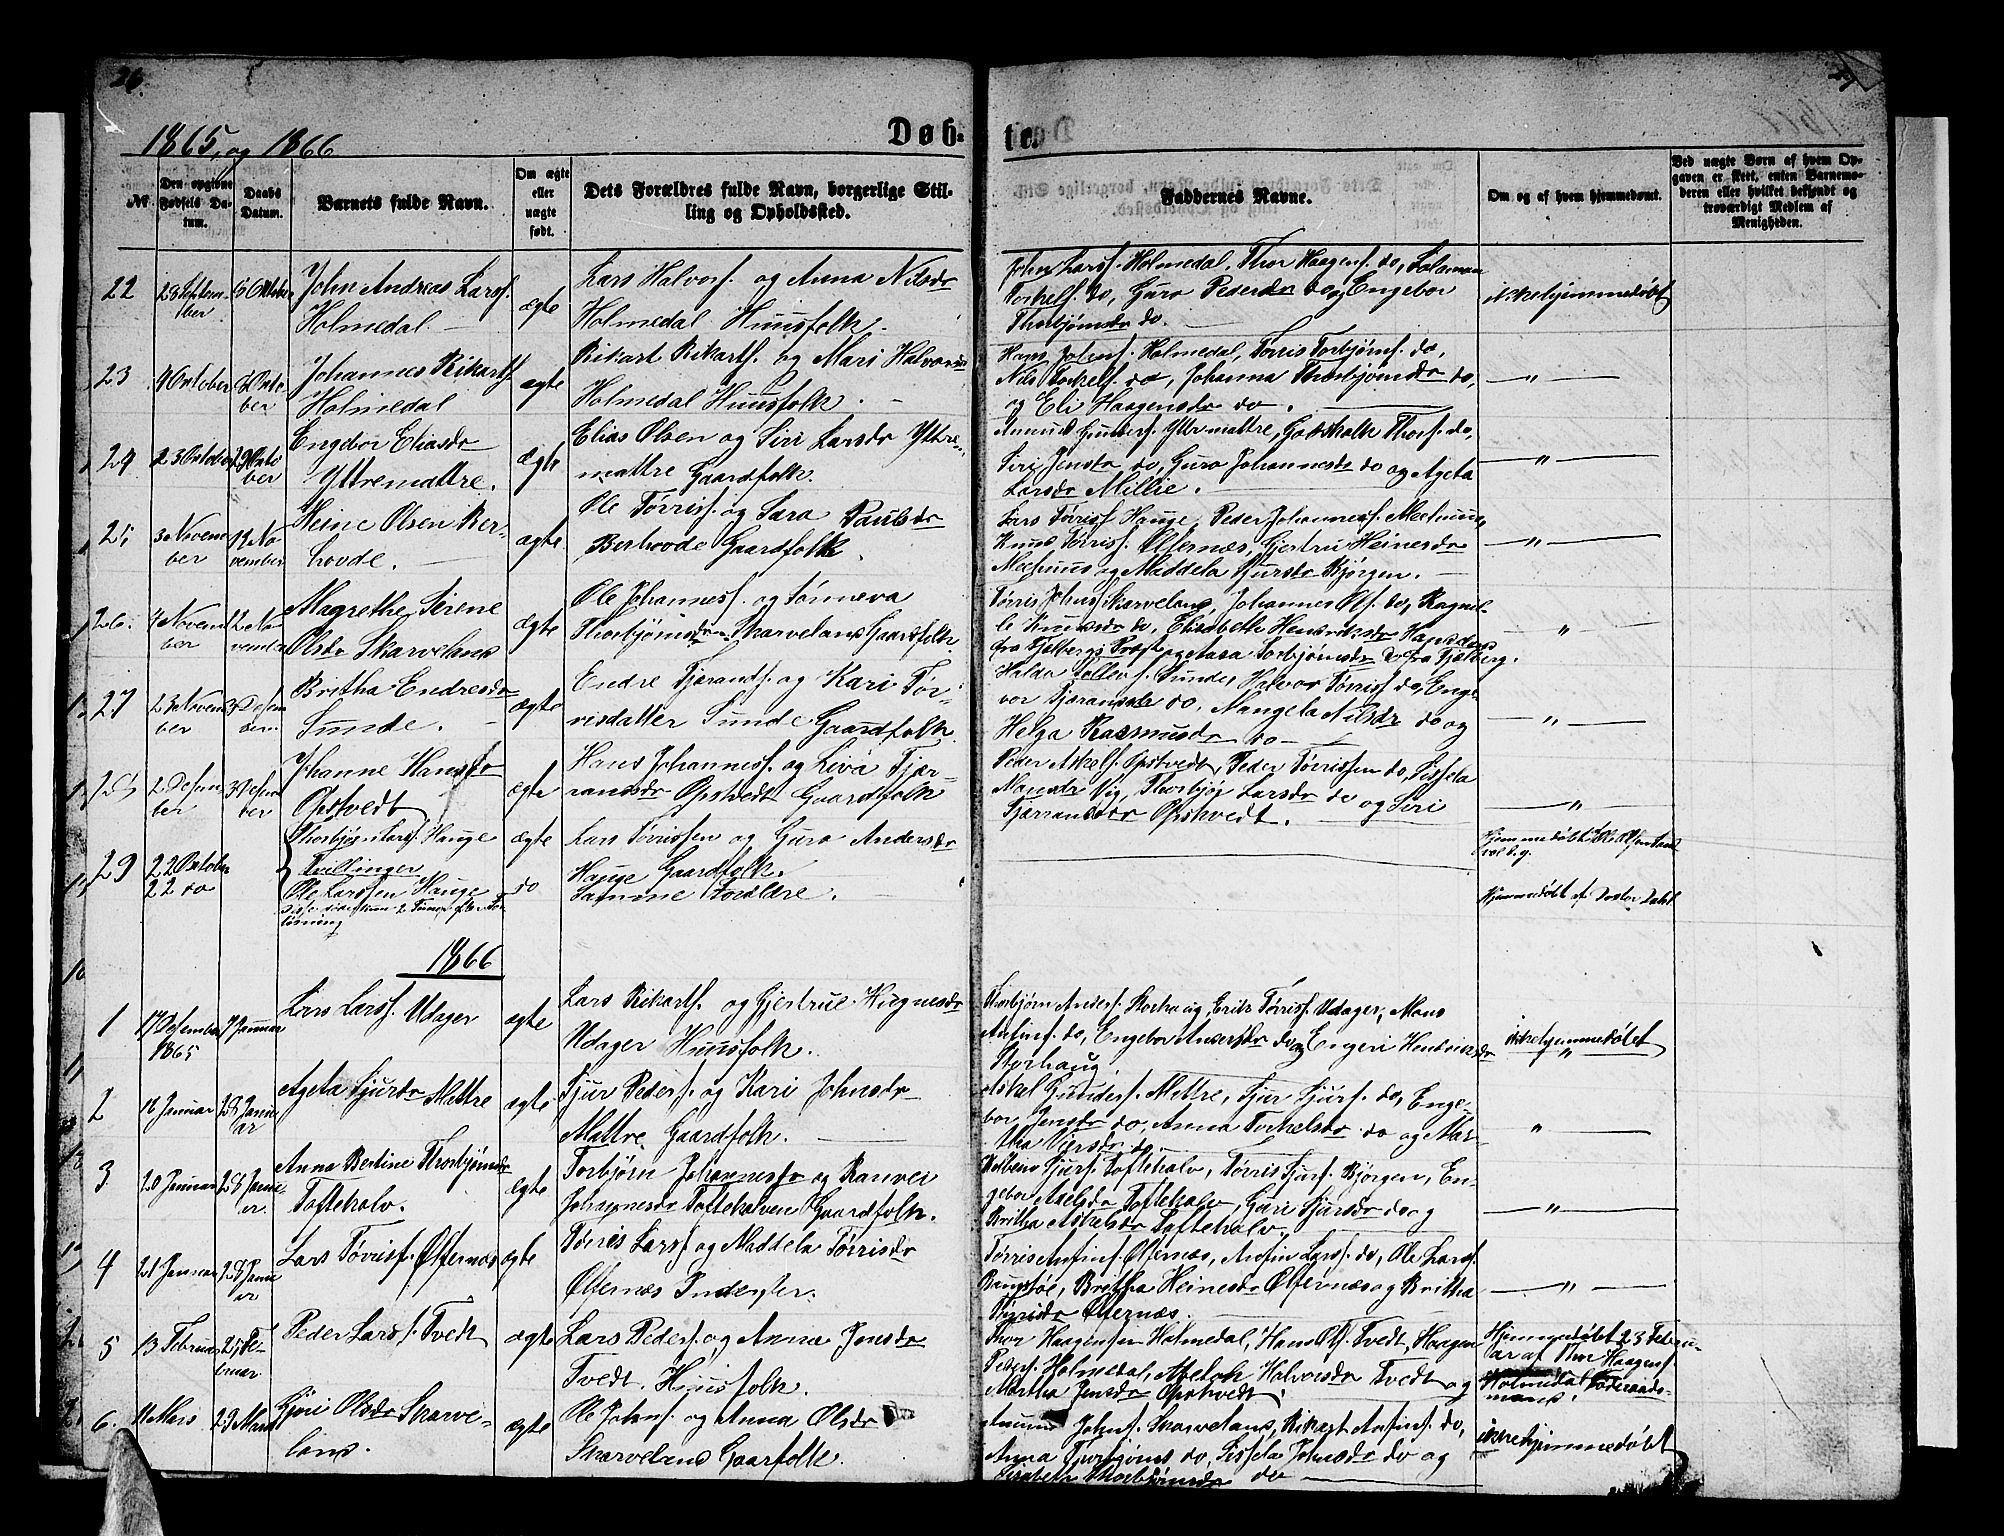 26.
27
1865, og 1866
Døb-
te.
№
Den opgivne Fødsels Datum.
Daabs Datum.
Barnets fulde Navn.
Om ægte eller uægte født.
Dets Forældres fulde Navn, borgerlige Stilling og Opholdssted.
Faddernes Navne.
Om og af hvem hjemmedøbt.
Ved uægte Børn af hvem Opgaven er skeet, enten Barnemoderen eller hvilket bekjendt og troværdigt Medlem af Menigheden.
22
28 Septem
ber
8 Oktober
John Andreas Larsf.
Holmedal
ægte
Lars Halvorsf. og Anna Nilsdr
Holmedal Huusfolk.
John Larsf. Holmedal, Thor Haagensf. do, Salamon
Torkelsf. do, Guro Pedersdr do og Engebor
Thorbjørnsdr do.
ikkehjemmedøbt
23
4 Oktober
Okto
ber
Johannes Rikartsf.
Holmedal
ægte
Rikart Rikartsf. og Mari Halvorsdr
Holmedal Huusfolk.
Hans Johnsf. Holmedal, Tørris Torbjørnsf. do,
Nils Torkelsf. do, Johanna Thorbjørnsdr do,
og Eli Haagensdr do.
— " —
24
23 Oktober
29 Okto
ber
Engebor Eliasdr
Yttremattre.
ægte
Elias Olsen og Siri Larsdr Yttre-
mattre Gaardfolk.
Amund Gundersf. Yttremattre, Godskalk Thorsf. do,
Siri Jensdr do, Guro Johannesdr do og Ageta
Larsdr Millie.
— " —
25
3 Novem
ber
12 No
vember
Heine Olsen Ber-
hovde.
ægte
Ole Tørrisf. og Sara Paulsdr
Berhovde Gaardfolk.
Lars Tørrisf Hauge, Peder Johannesf. Meehuus,
Knud Tørrisf. Ølfernæs, Gjertru Heinesdr
Meehuus og Maddela Sjursdr Bjørgen.
— " —
26.
4 Novem
ber
12 No
vember
Magrethe Serene
Olsdr Skarveland
ægte
Ole Johannesf. og Sønneva
Thorbjørnsdr Skarveland Gaardfolk.
Tørris Johnsf Skarveland, Johannes Olsf. do, Ragnil-
le Knudsdr do, Elisabeth Henriksdr
fra Fjelbergs Præst og Aasa Torbjørnsdr do fra Fjelberg.
— " —
27
23 Novem
ber
3 Desem
ber
Britha Endresdr
Sunde.
ægte
Endre Tjærandsf. og Kari Tør-
risdatter Sunde Gaardfolk.
Halvor Tørrisf do, Enge-
bor Tjærandsdr do, Mangela Nilsdr do og
Helga Rasmusdr do
— " —
28
2 Desem
ber
3 Desem
ber
Johanne Hansdr
Opstvedt
ægte
Hans Johannesf. og Liva Tjær-
randsdr Opstvedt Gaardfolk
Peder Askelsf. Opstvedt, Peder Tørrissen do, Sissela
Monsdr Vig, Thorbjør Larsdr do og Siri
Tjærrandsdr Opstvedt.
— " —
29
22 Oktober
22 do
Thorbjørn Larsf. Hauge
Tvillinger
Ole Larssen Hauge
ægte
do
Lars Tørrissen og Guro Andersdr
Hauge Gaardfolk.
Samme Forældre.
Hjemmedøbt af Doctor Dahl
1866
1
17 Desember
1865
7 Januar
Lars Larsf. Udager
ægte
Lars Rikartsf. og Gjertrue Hregnesdr
Udager Huusfolk.
Thorbjørn Andersf. Storhaug, Erik Tørrisf. Udager, Mons
Anfinsf. do, Engebor Andersdr do og Engeri Henriksdr
Storhaug.
ikkehjemmedøbt
2
18 Januar
28 Janu
ar
Ageta Sjursdr Mattre
ægte
Sjur Pedersf. og Kari Johnsdr
Mattre Gaardfolk.
Askel Gundersf. Mattre, Sjur Sjursf. do, Enge-
bor Jensdr do, Anna Torkelsdr do og Mar-
tha Sjursdr do.
"
3
20 Januar
28 Janu
ar.
Anna Bertine Thorbjørnsdr
Toftehalv.
ægte
Torbjørn Johannesdr og Ranvei
Johannesdr Toftehalven Gaardfolk.
Kolbens Sjursf. Toftehalv, Tørris Sjursf. Bjørgen, En-
gebor Axelsdr Toftehalv, Guri Sjursdr do og
Britha Askelsdr Toftehalv.
— " —
4
21 Januar
28 Janu
ar
Lars Tørrisf. Ølfernæs
ægte
Tørris Larsf og Maddela Tørrisdr
Ølfernæs Inderster.
Tørris Anfinsf. Ølfernæs, Anfin Larsf. do, Ole Larsf.
Britha Heinesdr Ølfernæs og Britha
Sjursdr Ølfernæs.
— " —
5
13 Februar
25 Fe-
bruar.
Peder Larsf. Tvedt
ægte
Lars Pedersf. og Anna Jensdr
Tvedt. Huusfolk.
Thor Haagensen Holmedal, Hans Olsf. Tvedt, Haagen
Pedersf. Holmedal, Abelok Halvorsdr Tvedt og
Martha Jensdr Opstvedt.
Hjemmedøbt 23 Febru-
ar af Thor Haagensf.
Holmedal Føderaads-
mand.
6.
11 Mars
29 Mars
Gjøri Olsdr Skarve-
land.
ægte
Ole Johnsf. og Anna Olsdr
Skarveland Gaarfolk.
Amund Johnsf. Skarveland, Rikart Anfinsf. do,
Anna Tjorbjørns do, Sissela Johnsdr do og
Lisabeth Thorbjørnsdr do
ikkehjemmedøbt